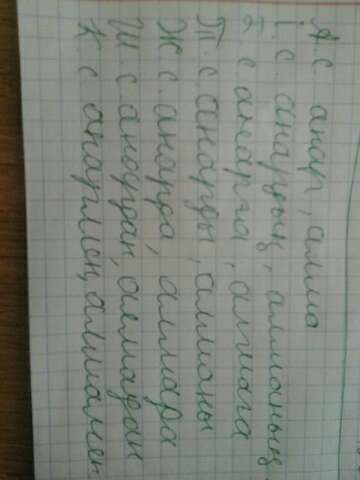 А.с анар, алма
І.с анардың, алманың
Б.с анарға, алмаға
Т.с анарды, алманы
Ж.с анарда, алмада
Ш.с анардан, алмадан
К.с анармен, алмамен